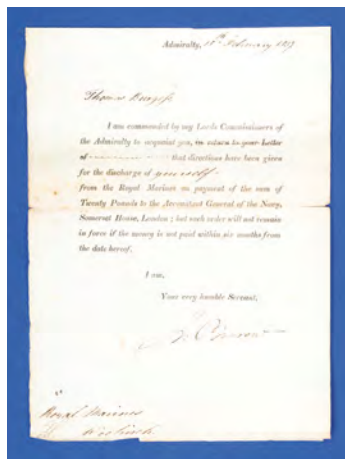 Admiralty, 18th February 18
Thomas Burgess
I am commanded by my Lords Commissioners of
the Admiralty to acquaint you, in return to your letter
of that directions have been given
for the discharge of yourself
from the Royal Marines on payment of the sum of
Twenty Pounds to the Accountant General of the Navy,
Somerset House, London; but such order will not remain
in force if the money is not paid within six months from
the date hereof.
I am,
Your very humble Servant,
Royal Marines
Woolwich